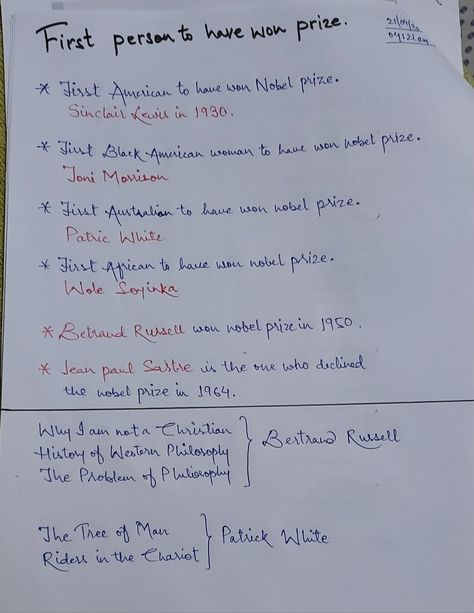 First person to have won prize.
21/04/23
04:12am
* First American to have won Nobel prize.
Sinclair Lewis in 1930.
* First Black American woman to have won nobel prize.
Toni Morrison
* First Australian to have won nobel prize.
Patric White
* First African to have won nobel prize.
Wole Soyinka
* Betrand Russell won nobel prize in 1950.
* Jean paul Sastre is the one who declined
the nobel prize in 1964.
Why I am not a Christian
History of Western Philosophy
The Problem of Philiosophy
Bertrand Russell
The Tree of Man
Riders in the Chariot
Patrick White